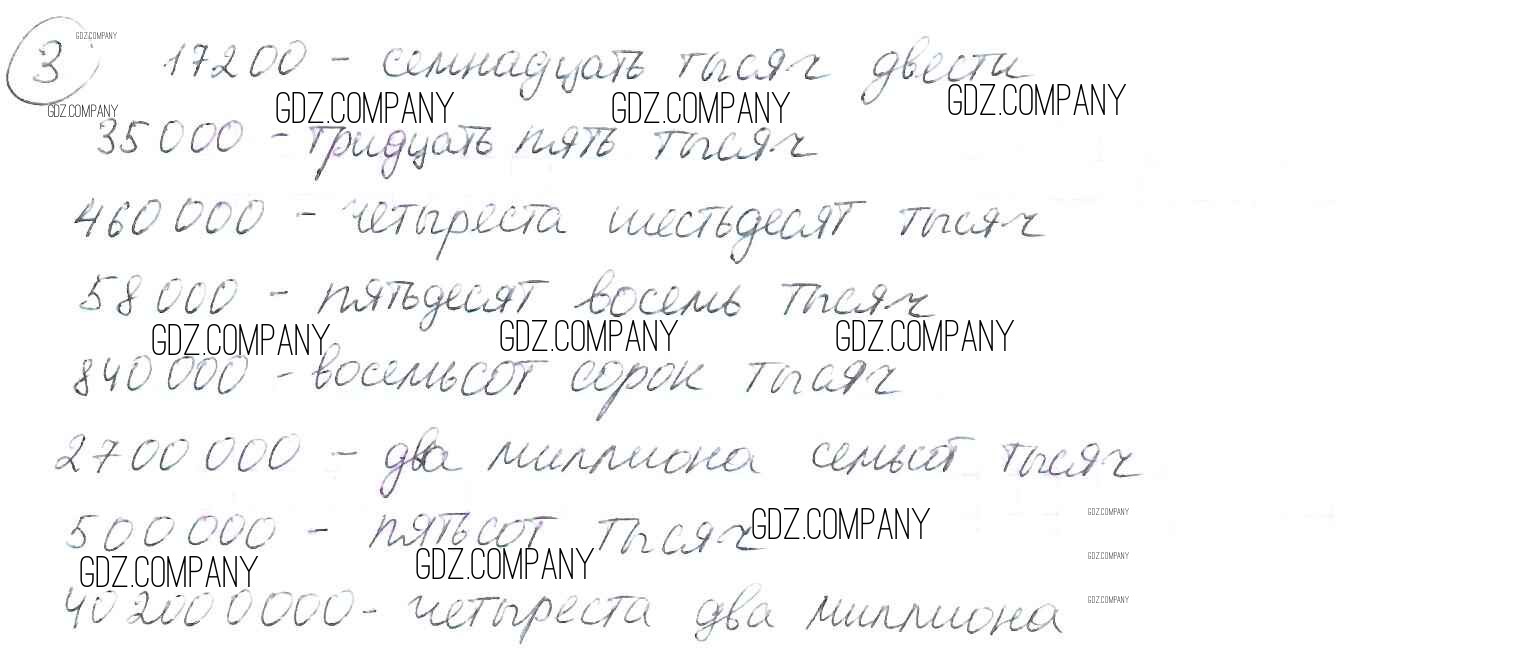 GDZ.COMPANY
3 17200 - семнадцать тысяч двести
GDZ.COMPANY GDZ.COMPANY GDZ.COMPANY GDZ.COMPANY
35 000 - тридцать пять тысяч
460 000 - четыреста шестьдесят тысяч
58 000 - пятьдесят восемь тысяч
GDZ.COMPANY GDZ.COMPANY GDZ.COMPANY
840 000 - восемьсот сорок тысяч
2700 000 - два миллиона семьсот тысяч
GDZ.COMPANY
500 000 - пятьсот тысяч GDZ.COMPANY
GDZ.COMPANY GDZ.COMPANY GDZ.COMPANY
402000000 - четыреста два миллиона GDZ.COMPANY